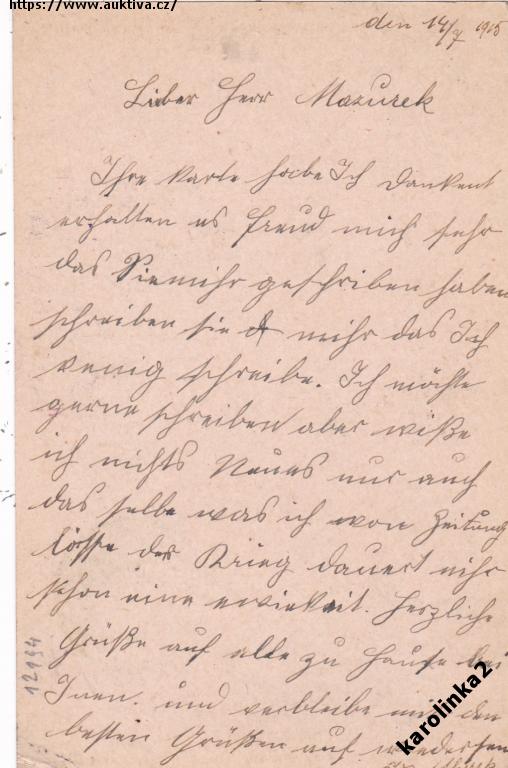 https://www.auktiva.cz/
den 14/7 1915
Lieber Herr Mazurek
Ihre Karte habe Ich Dankent
erhalten es freud mich sehr
das Sie mihr geschriben haben
schreiben sie mihr das Ich
wenig schreibe. Ich möchte
gerne schreiben aber wiße
ich nichts Neues nur auch
das selbe was ich von Zeitung
lösse der Krieg dauert mihr
schon eine ewiekeit. Herzliche
Grüße auf alle zu Hause bei
Inen. und verbleibe mit den
besten Grüßen auf wiedersehen
12194
karolinka2